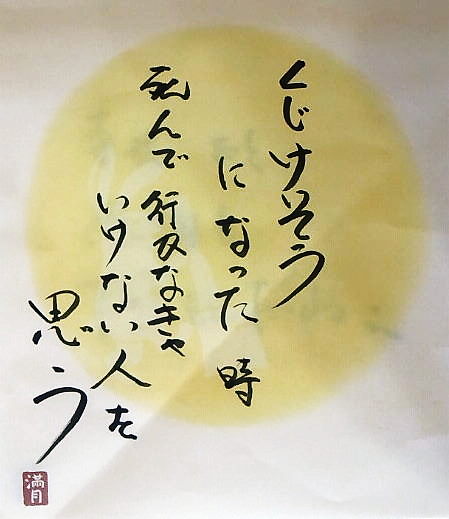 くじけそう
になった時
死んで行かなきゃ
いけない人を
思う
満月